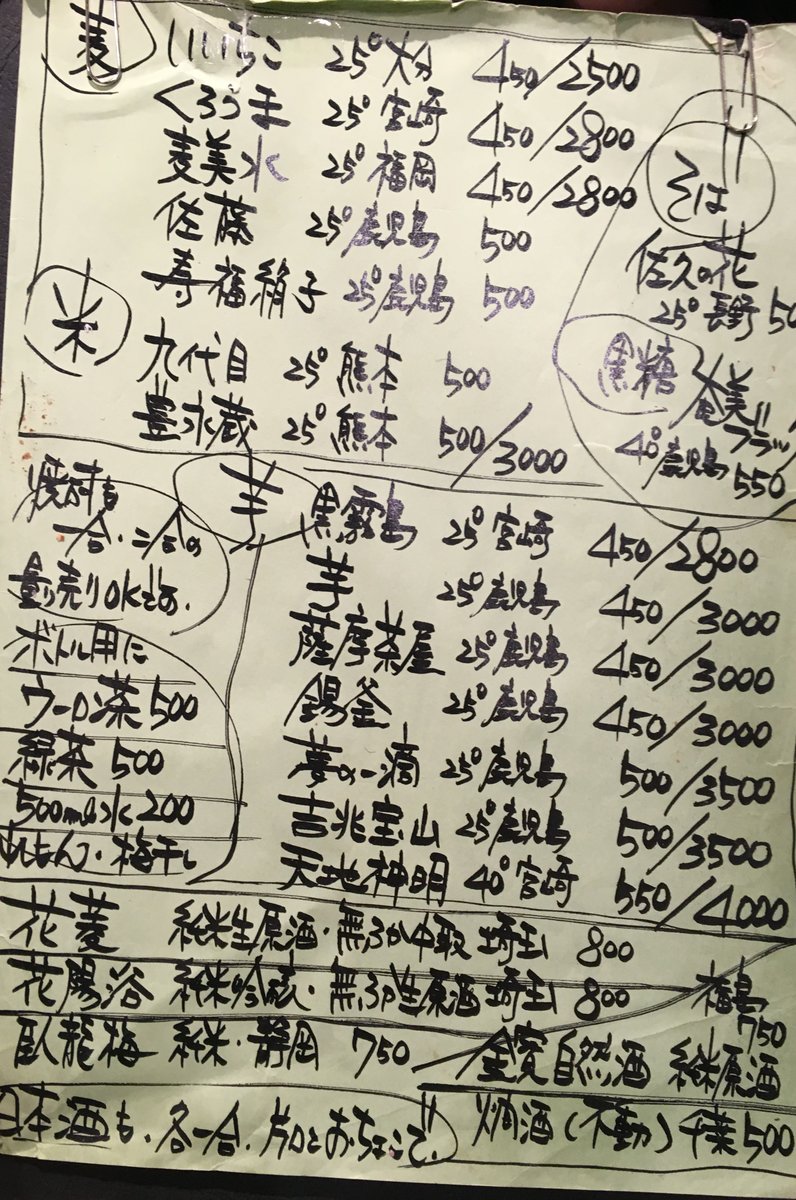 麦
いいちこ 25° 大分 450/2500
くろうま 25° 宮崎 450/2800
麦美水 25° 福岡 450/2800
佐藤 25° 鹿児島 500
寿福絹子 25° 鹿児島 500
米
九代目 25° 熊本 500
豊永蔵 25° 熊本 500/3000
そば
佐久の花
25° 長野 50
黒糖
奄美
ブラック
40° 鹿児島 550
焼酎も
一合・二合の
量り売りOKです。
ボトル用に
ウーロン茶 500
緑茶 500
500ml水 200
れもん・梅干し
芋
黒霧島 25° 宮崎 450/2800
芋 25° 鹿児島 450/3000
薩摩茶屋 25° 鹿児島 450/3000
錫釜 25° 鹿児島 450/3000
夢の一滴 25° 鹿児島 500/3500
吉兆宝山 25° 鹿児島 500/3500
天地神明 40° 宮崎 550/4000
花菱 純米生原酒・無ろか中取 埼玉 800
花陽浴 純米吟醸・無ろか生原酒 埼玉 800
臥龍梅 純米・静岡 750
金寳自然酒 純米原酒 福島 750
燗酒(不動)千葉 500
日本酒も、各一合、片口とおちょこで